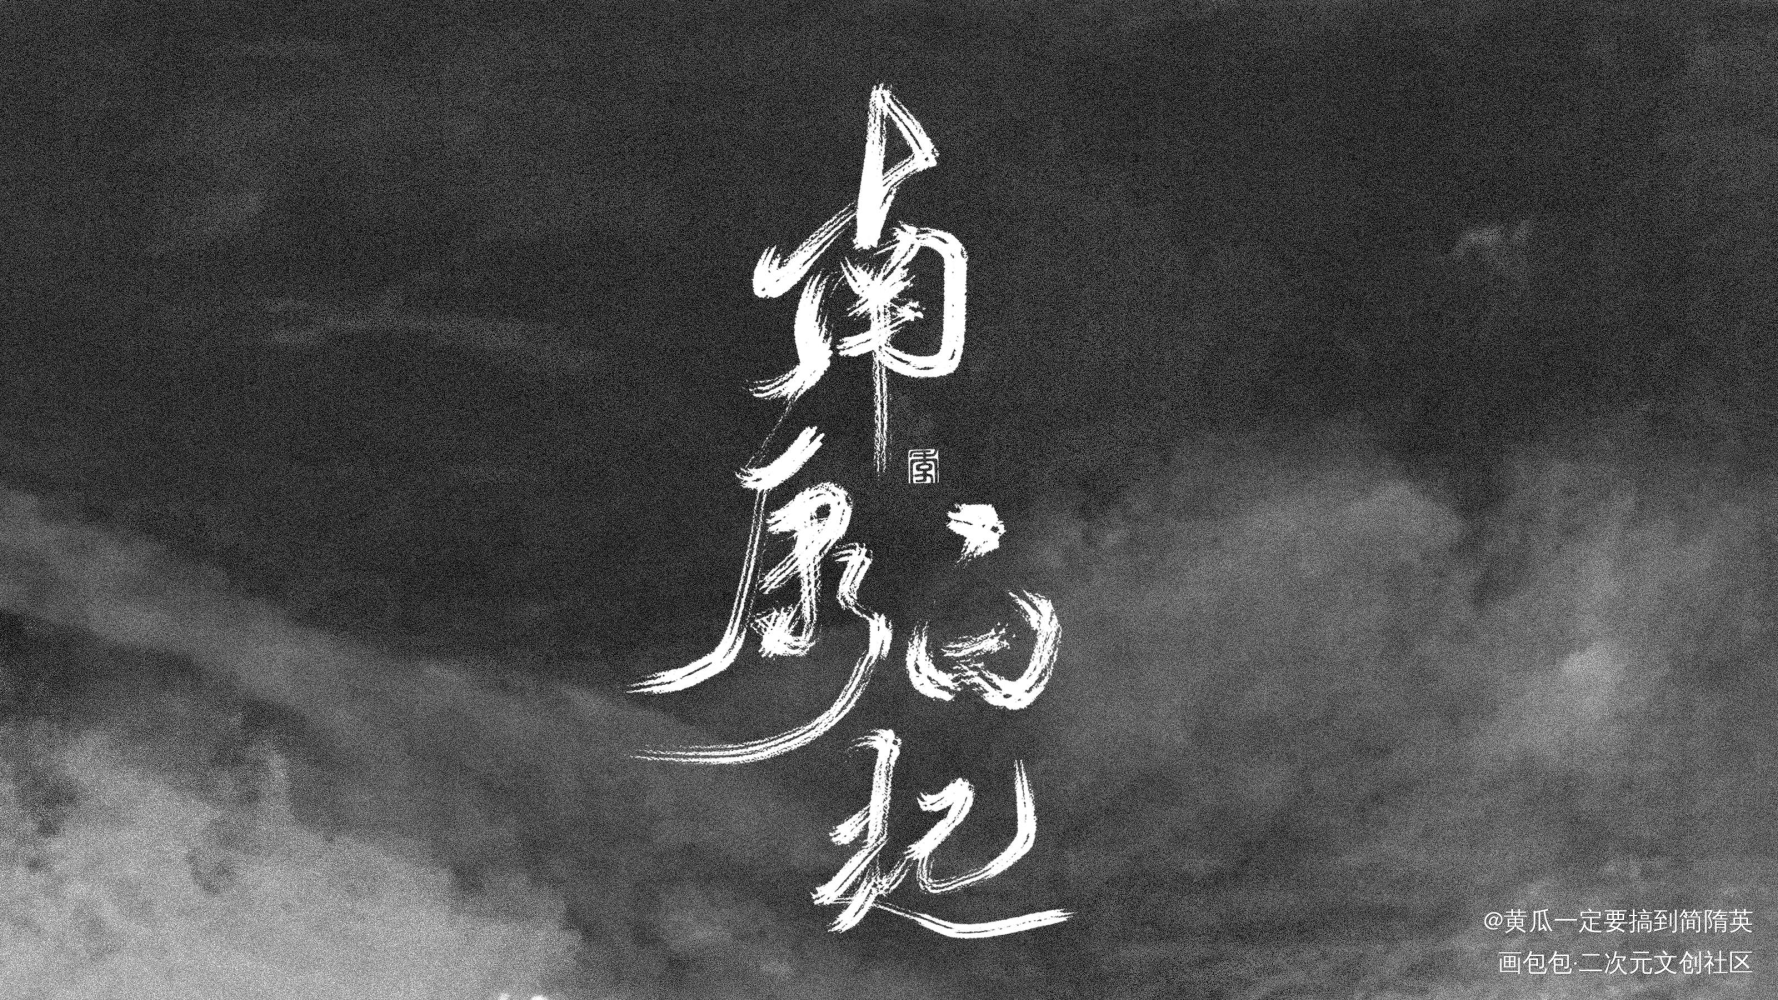 南康白起
@黄瓜一定要搞到简隋英
画包包·二次元文创社区